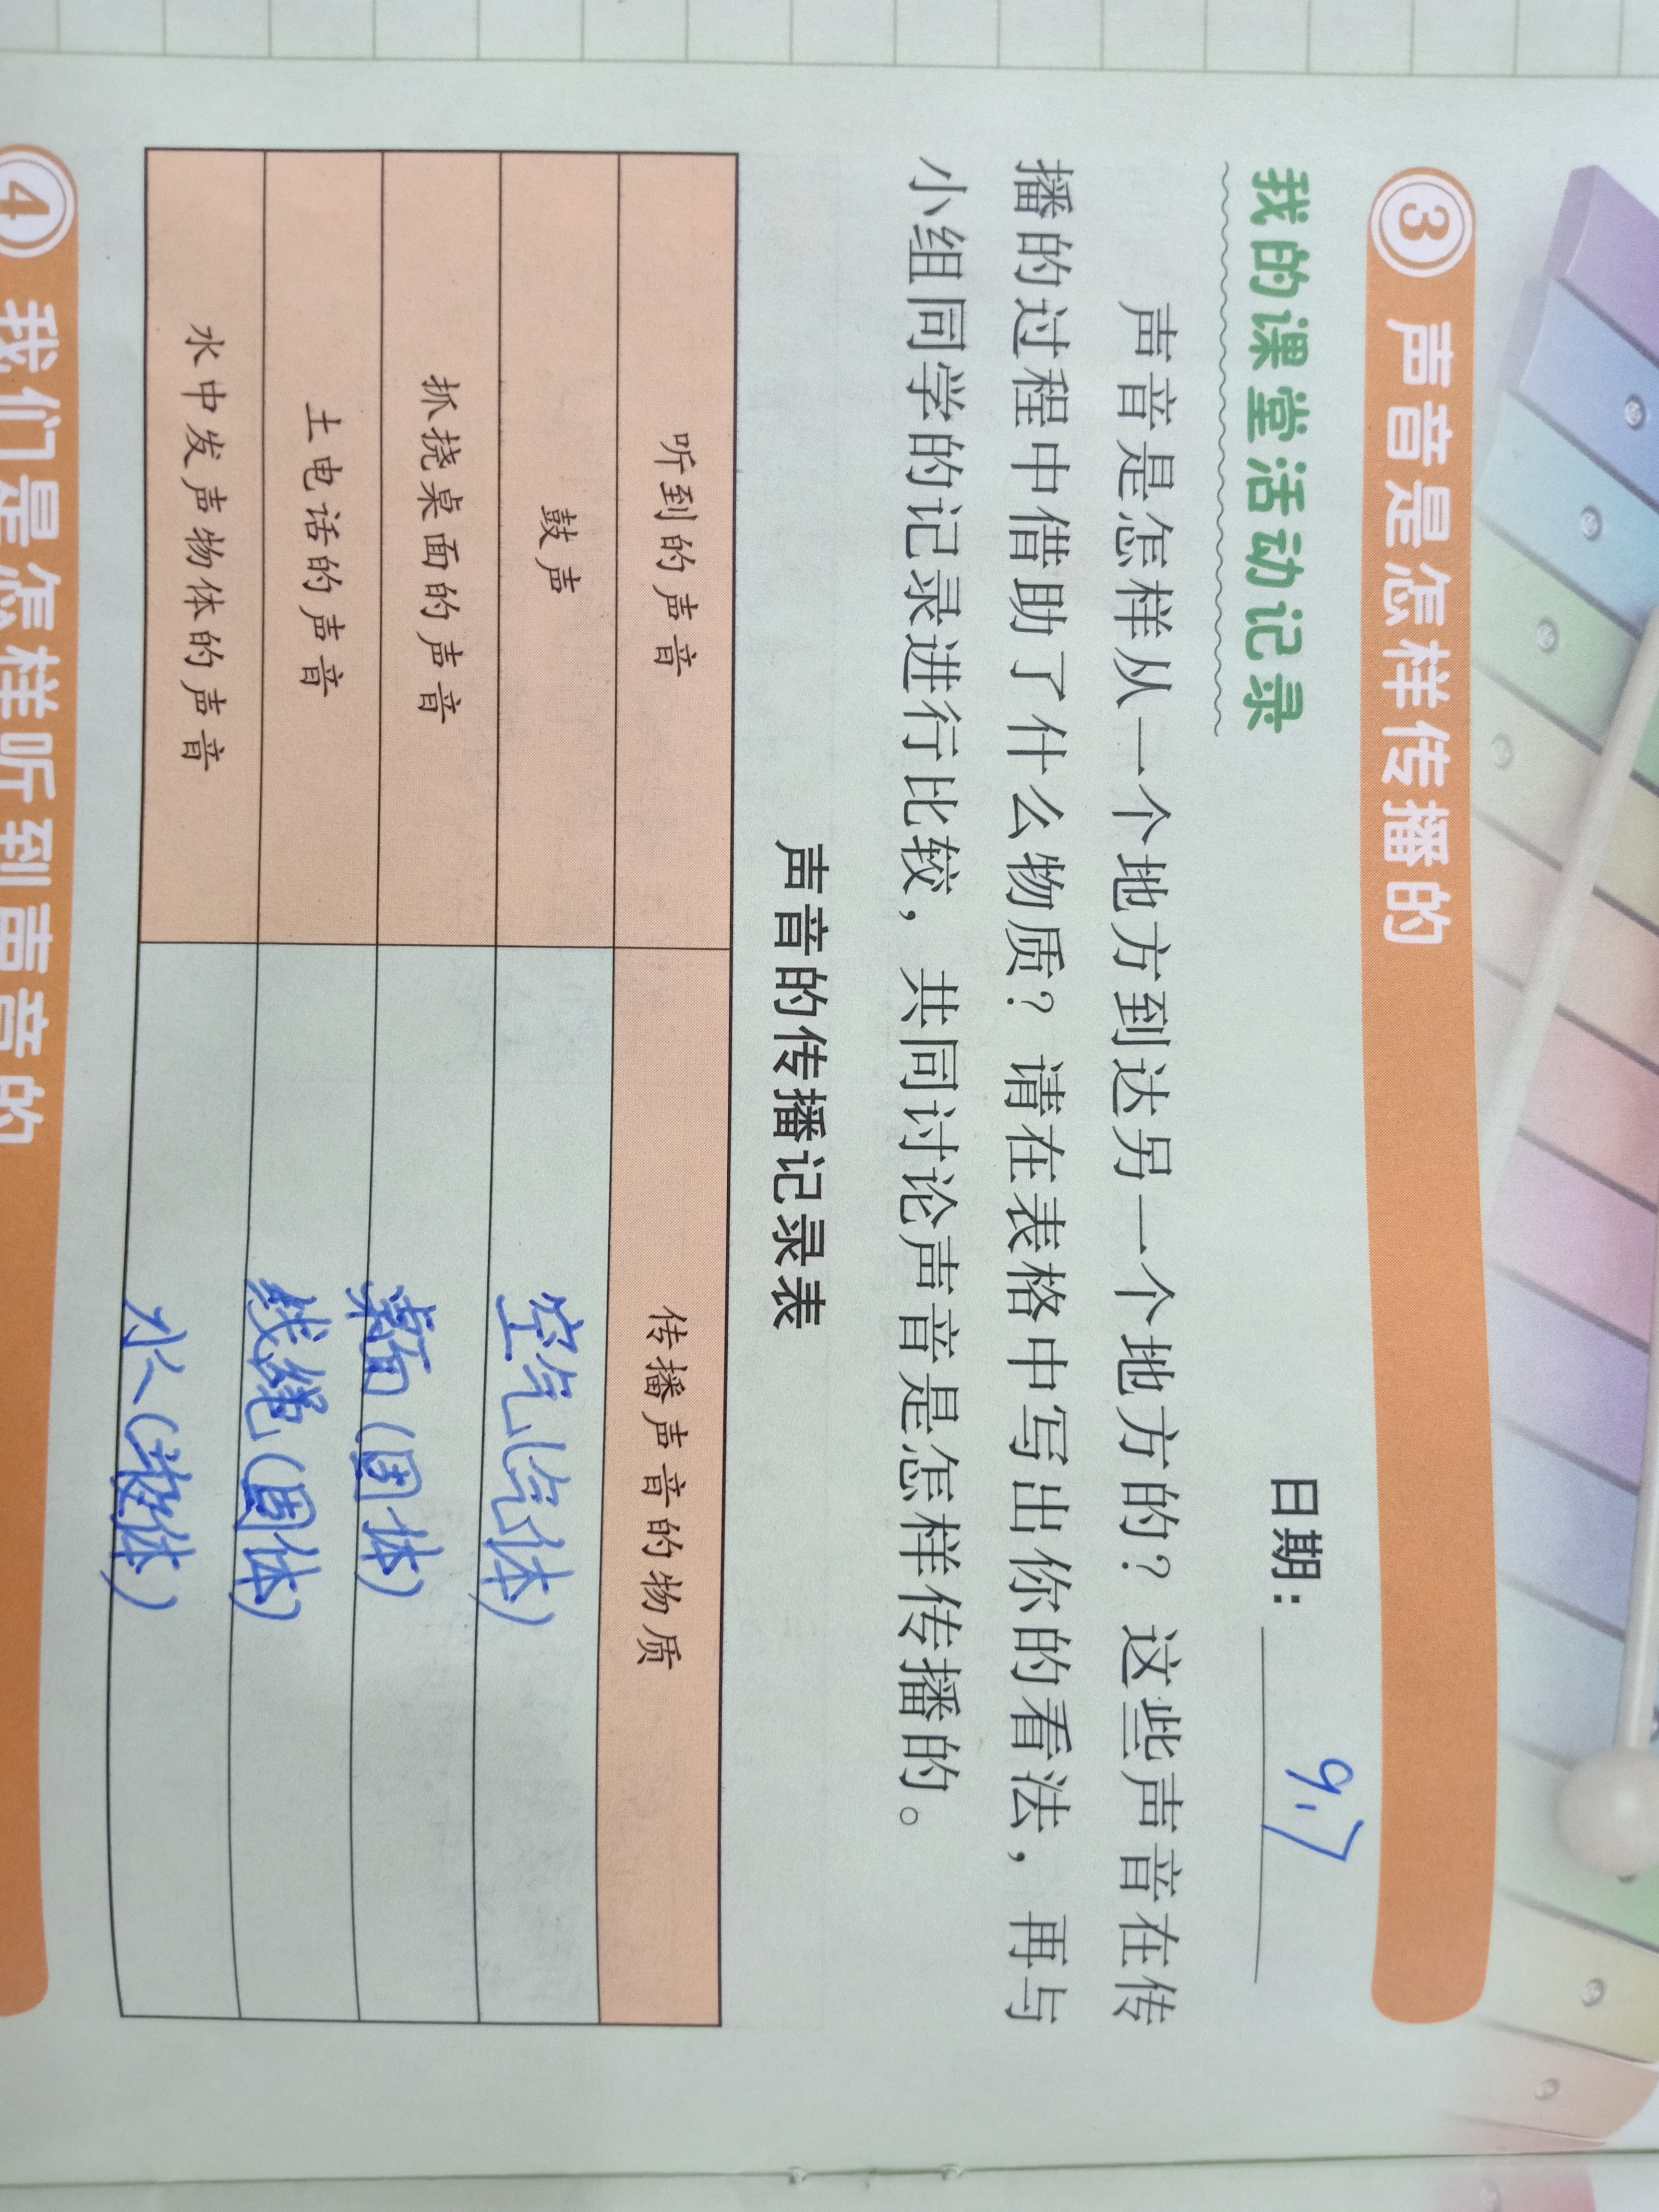 ③ 声音是怎样传播的
我的课堂活动记录
日期： 9.7
声音是怎样从一个地方到达另一个地方的？这些声音在传
播的过程中借助了什么物质？请在表格中写出你的看法，再与
小组同学的记录进行比较，共同讨论声音是怎样传播的。
声音的传播记录表
听到的声音 传播声音的物质
鼓声 空气(气体)
抓挠桌面的声音 桌面(固体)
土电话的声音 线绳(固体)
水中发声物体的声音 水(液体)
④ 我们是怎样听到声音的